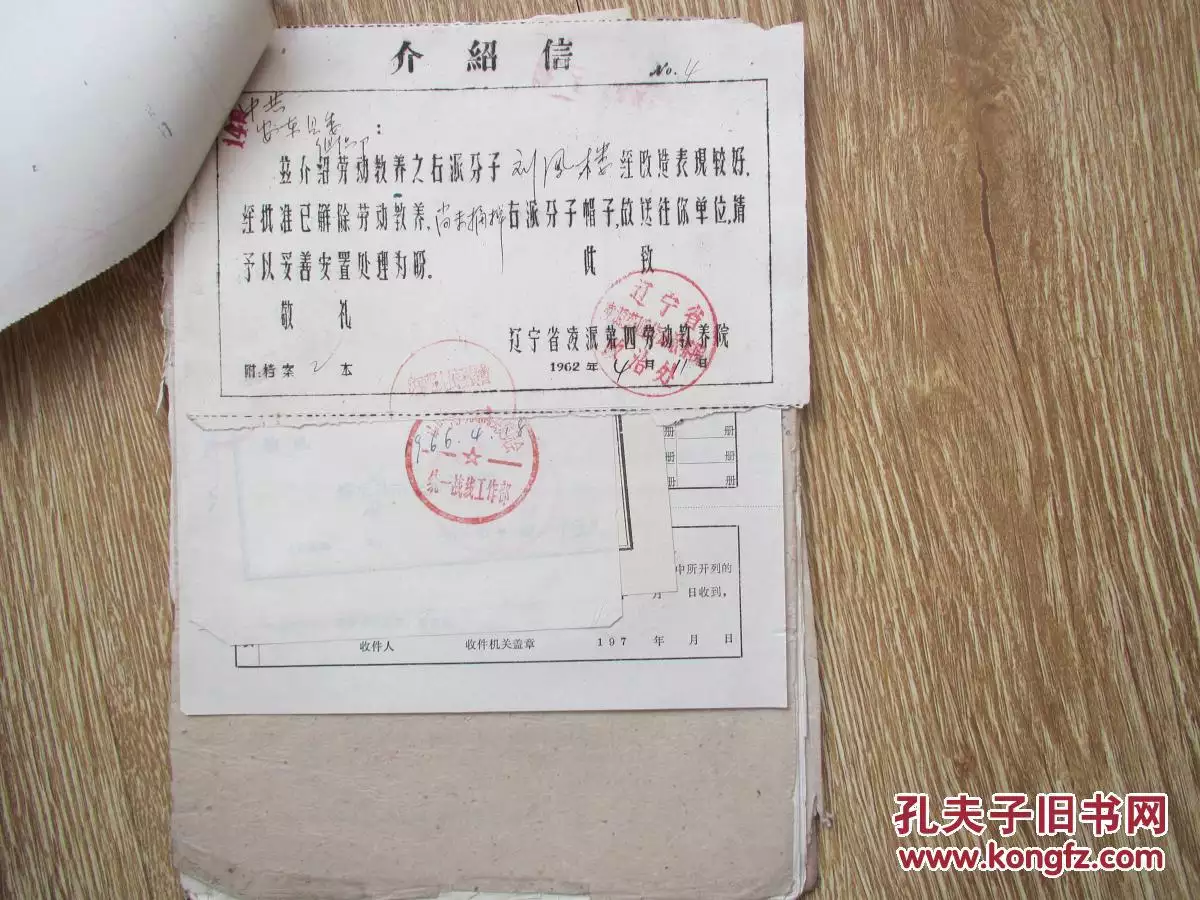 介紹信
No. 4
14
中共
安东县委
:
兹介绍劳动教养之右派分子刘凤楼经改造表现较好.
经批准已解除劳动教养,尚未摘掉右派分子帽子,放送往你单位,请
予以妥善安置处理为盼.
此致
敬礼
辽宁省凌派第四劳动教养院
附:档案2本
1962年4月11日
辽宁省
政治处
册
册
册
中所开列的
月 日收到,
收件人 收件机关盖章 197 年 月 日
孔夫子旧书网
www.kongfz.com